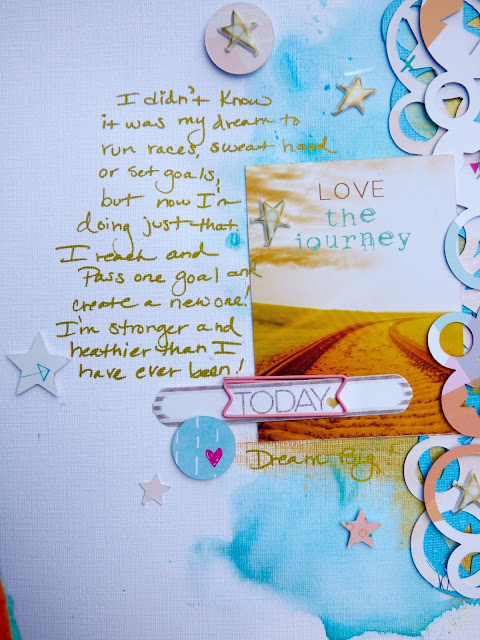 I didn't know
it was my dream to
run races, sweat hard
or set goals,
but now I'm
doing just that.
I reach and
Pass one goal and
create a new one!
I'm stronger and
healthier than I
have ever been!
LOVE
the
journey
TODAY
Dream Big!